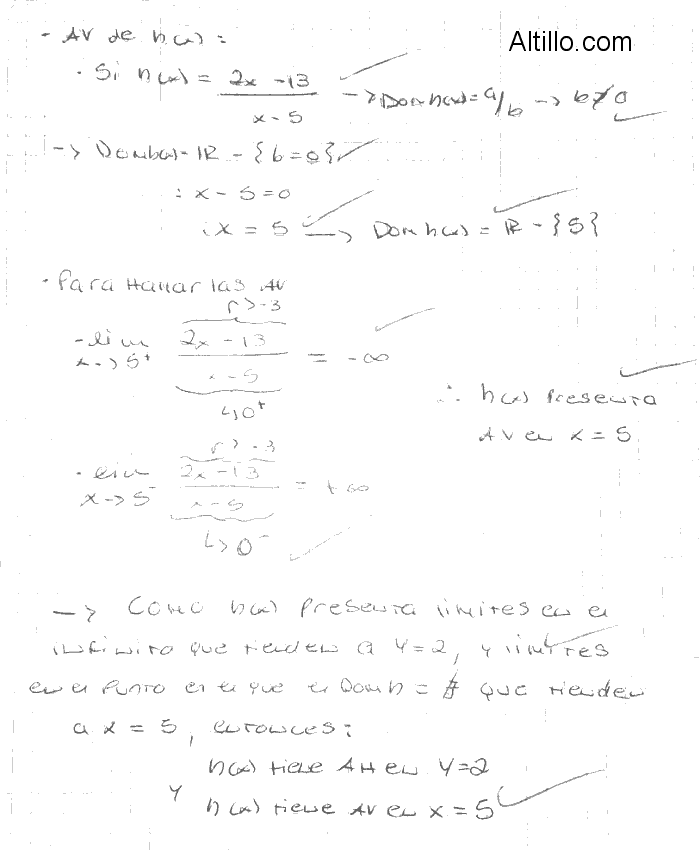 Altillo.com
- AV de h(x) :
· Si h(x) = 2x - 13 / x - 5 → Dom h(x) = a/b → b ≠ 0
→ Dom h(x) = IR - {b = 0}
: x - 5 = 0
: x = 5 → Dom h(x) = IR - {5}
· Para Hallar las AV
→ -3
- lim x→5⁺ 2x - 13 / x - 5 = -∞
↳ 0⁺
∴ h(x) Presenta
AV en x = 5
→ -3
· lim x→5⁻ 2x - 13 / x - 5 = +∞
↳ 0⁻
→ Como h(x) Presenta limites en el
infinito que tienden a y = 2, y limites
en el punto en el que el Dom h = ∄ que tienden
a x = 5, entonces:
h(x) tiene AH en y = 2
y
h(x) tiene AV en x = 5